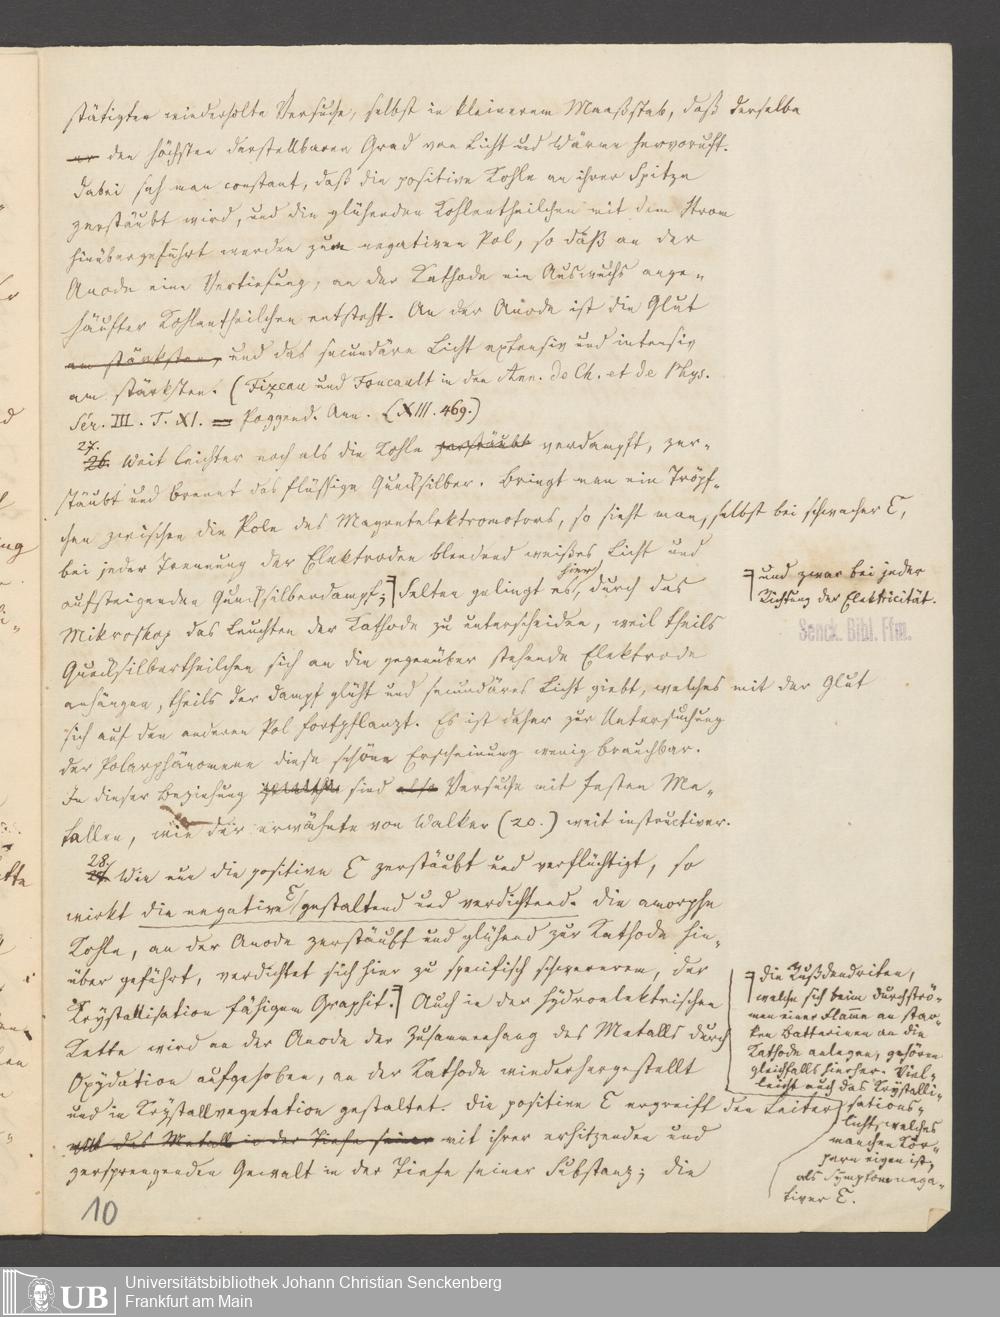 stätigten wiederholte Versuche, selbst in kleinerem Maaßstab, daß derselbe
er den höchsten darstellbaren Grad von Licht und Wärme hervorruft.
Dabei sah man constant, daß die positive Kohle an ihrer Spitze
zerstäubt wird, und die glühenden Kohlentheilchen mit dem Strom
hinübergeführt werden zum negativen Pol, so daß an der
Anode eine Vertiefung, an der Kathode ein Auswuchs ange-
häufter Kohlentheilchen entsteht. An der Anode ist die Glut
am stärksten, und das secundäre Licht extensiv und intensiv
am stärksten. (Fizeau und Foucault in den Ann. de Ch. et de Phys.
Sér. III. T. XI. = Poggend. Ann. LXIII. 469.)
27.
26. Weit leichter noch als die Kohle zerstäubt verdampft, zer-
stäubt und brennt das flüssige Quecksilber. Bringt man ein Tröpf-
chen zwischen die Pole des Magnetelektromotors, so sieht man, selbst bei schwacher E,
bei jeder Trennung der Elektroden blendend weißes Licht und
aufsteigenden Quecksilberdampf; Selten gelingt es hier, durch das
und zwar bei jeder
Richtung der Elektricität.
Senck. Bibl. Ffm.
Mikroskop das Leuchten der Kathode zu unterscheiden, weil theils
Quecksilbertheilchen sich an die gegenüber stehende Elektrode
anhängen, theils der Dampf glüht und secundäres Licht giebt, welches mit der Glut
sich auf den anderen Pol fortpflanzt. Es ist daher zur Untersuchung
der Polarphänomene diese schöne Erscheinung wenig brauchbar.
In dieser Beziehung sind also Versuche mit festen Me-
tallen, wie der erwähnte von Walker (20.) weit instructiver.
28.
Wie nun die positive E zerstäubt und verflüchtigt, so
wirkt die negative E gestaltend und verdichtend. Die amorphe
Kohle, an der Anode zerstäubt und glühend zur Kathode hin-
über geführt, verdichtet sich hier zu specifisch schwererem, der
Krystallisation fähigem Graphit. Auch in der hydroelektrischen
Kette wird an der Anode der Zusammenhang des Metalls durch
Oxydation aufgehoben, an der Kathode wiederhergestellt
und in Krystallvegetation gestaltet. Die positive E ergreift den Leiter
das Metall in der Tiefe seiner mit ihrer erhitzenden und
zersprengenden Gewalt in der Tiefe seiner Substanz; die
die Rußdendriten,
welche sich beim Durchströ-
men einer Flamme an star-
ken Batterieen an die
Kathode anlegen, gehören
gleichfalls hierher. Viel-
leicht auch das Krystalli-
sations-
licht, welches
manchen Kör-
pern eigen ist,
als Symptom nega-
tiver E.
10
UB
Universitätsbibliothek Johann Christian Senckenberg
Frankfurt am Main